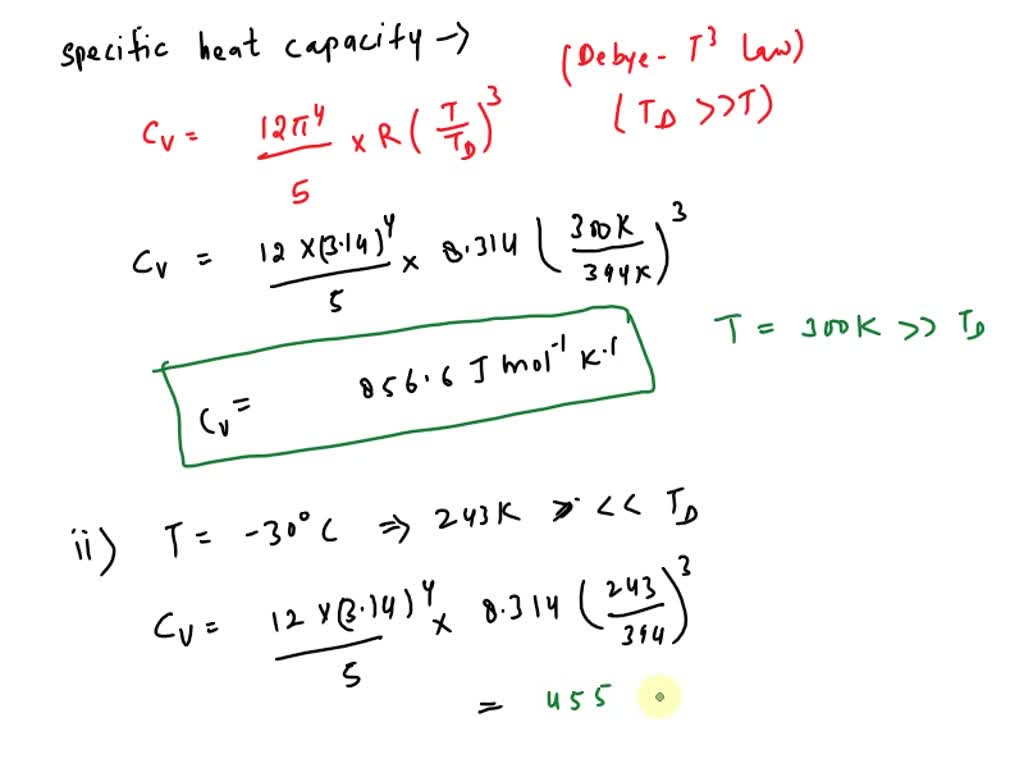 specific heat capacity →
(Debye - T³ Law)
(T_D >> T)
C_V = 12π⁴/5 × R (T/T_D)³
C_V = 12 × (3.14)⁴/5 × 8.314 (300K/394K)³
T = 300K >> T_D
C_V = 856.6 J mol⁻¹ K⁻¹
ii) T = -30°C ⇒ 243K << T_D
C_V = 12 × (3.14)⁴/5 × 8.314 (243/394)³
= 455